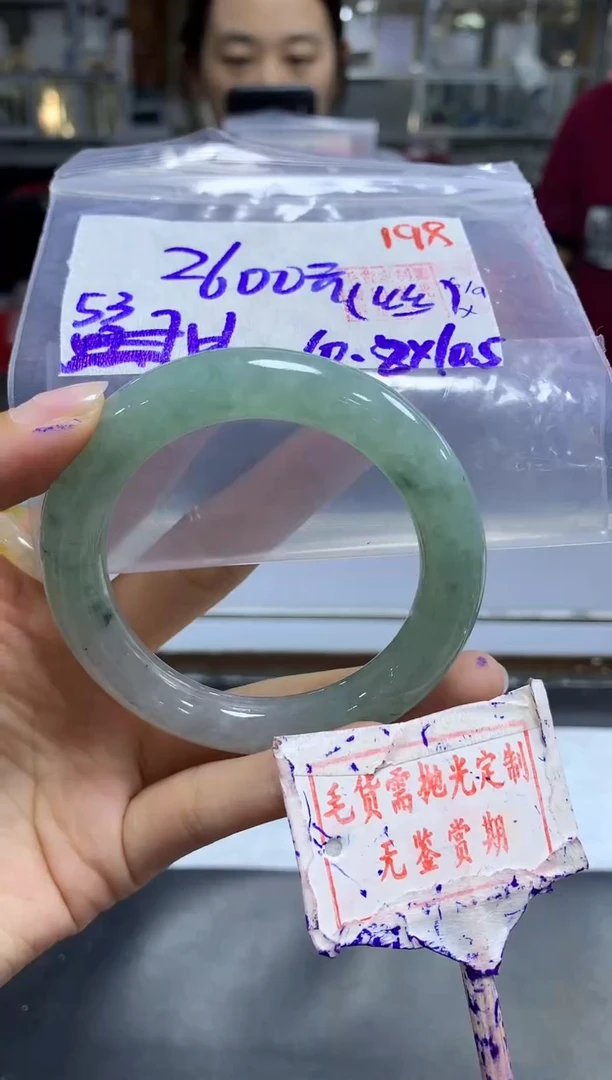 198
2600元
53
10.8x10.5
毛货需抛光定制
无鉴赏期